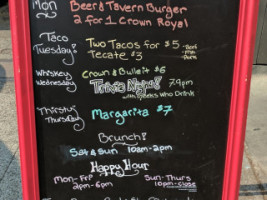 Mon Beer & Tavern Burger
2 for 1 Crown Royal
Taco Tuesday! Two Tacos for $5
Tecate $3
Whiskey Wednesday Crown & Bulleit $6
Trivia Night! 7-9pm
with Geeks Who Drink
Thirsty Thursday Margarita $7
Brunch!
Sat & Sun 10am-2pm
Happy Hour
Mon-Fri Sun-Thurs
2pm-6pm 10pm-close